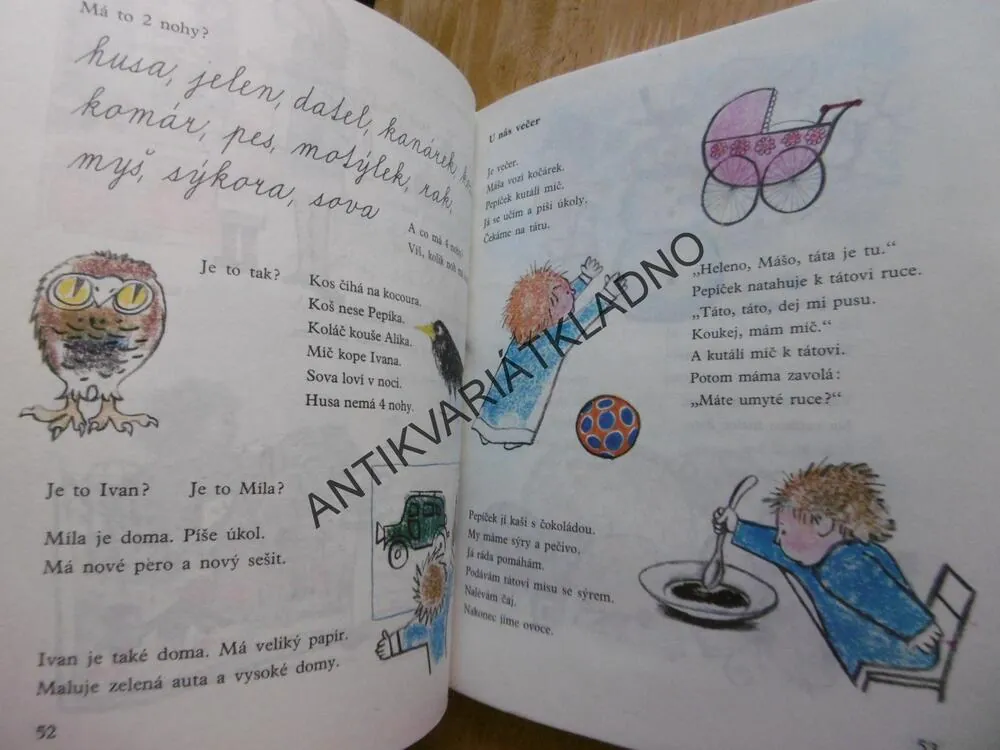 Má to 2 nohy?
husa, jelen, datel, kanárek,
komár, pes, motýlek, rak,
myš, sýkora, sova
A co má 4 nohy?
Víš, kolik noh má
Je to tak?
Kos číhá na kocoura.
Koš nese Pepíka.
Koláč kouše Alíka.
Míč kope Ivana.
Sova loví v noci.
Husa nemá 4 nohy.
Je to Ivan? Je to Míla?
Míla je doma. Píše úkol.
Má nové pero a nový sešit.
Ivan je také doma. Má veliký papír.
Maluje zelená auta a vysoké domy.
52
U nás večer
Je večer.
Máša vozí kočárek.
Pepíček kutálí míč.
Já se učím a píši úkoly.
Čekáme na tátu.
„Heleno, Mášo, táta je tu.“
Pepíček natahuje k tátovi ruce.
„Táto, táto, dej mi pusu.
Koukej, mám míč.“
A kutálí míč k tátovi.
Potom máma zavolá:
„Máte umyté ruce?“
Pepíček jí kaši s čokoládou.
My máme sýry a pečivo.
Já ráda pomáhám.
Podávám tátovi mísu se sýrem.
Nalévám čaj.
Nakonec jíme ovoce.
ANTIKVARIÁTKLADNO